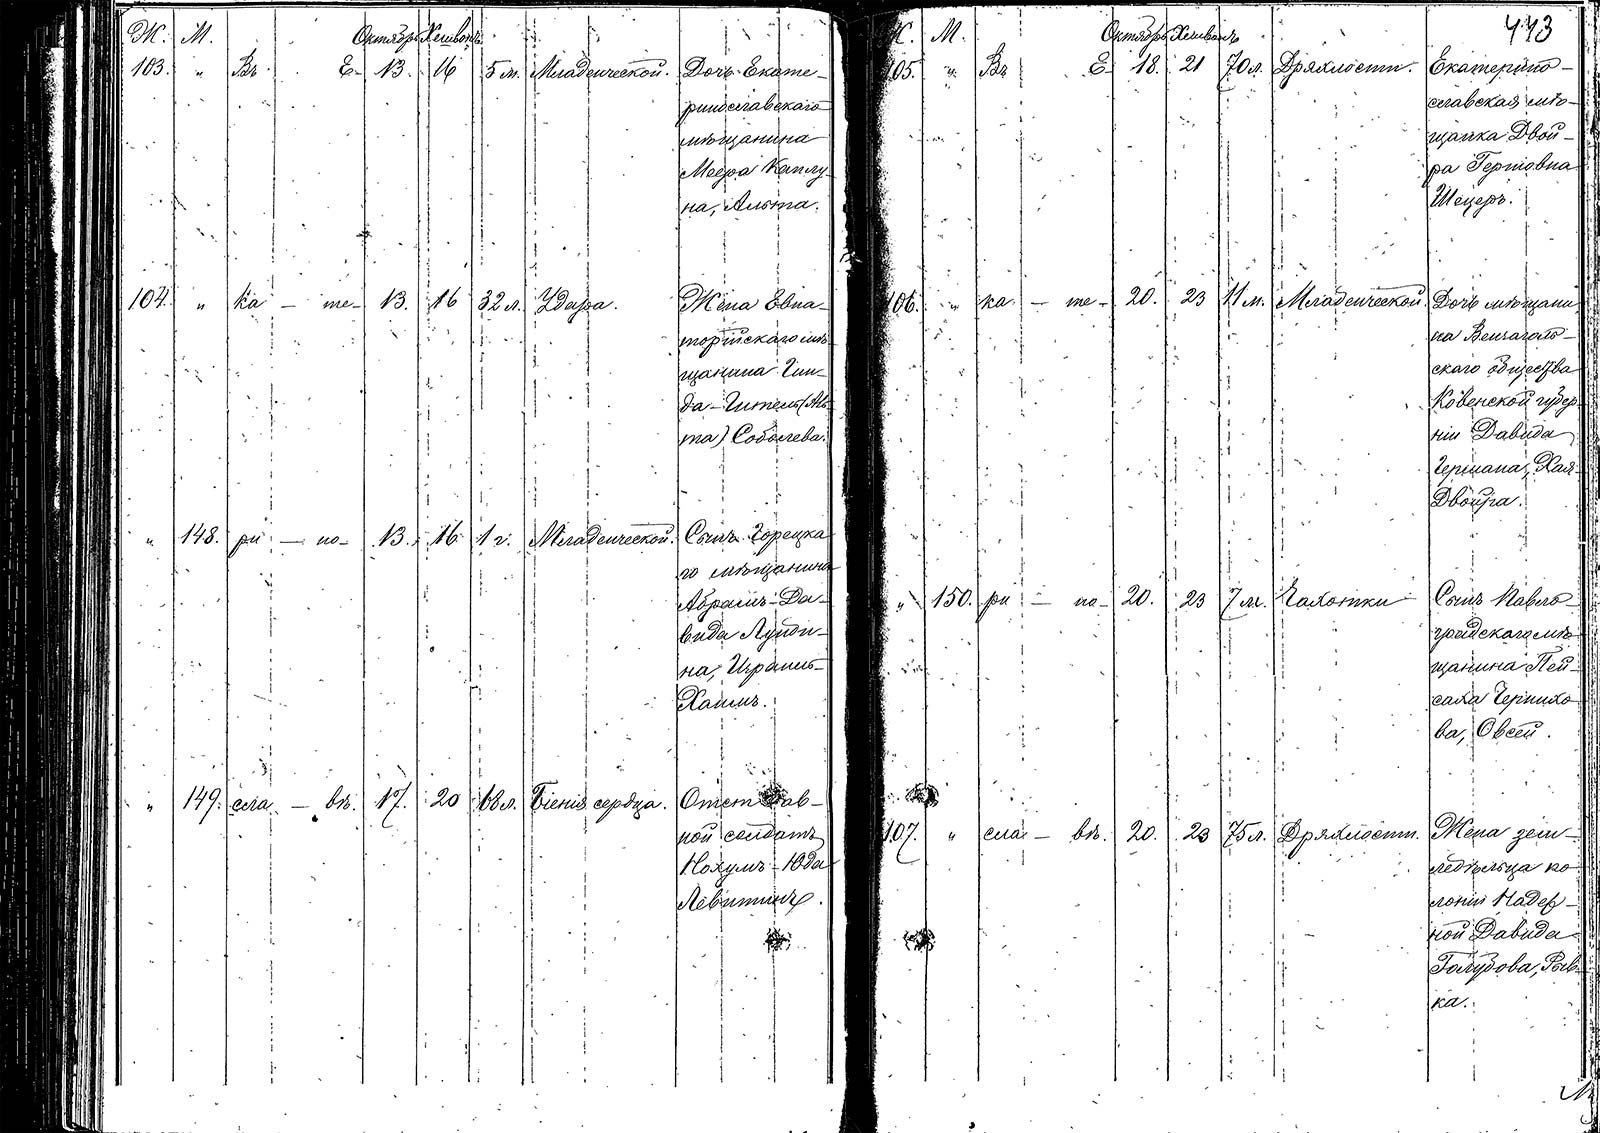 Ж. М. Октябрь Хешвонъ
103. „ Въ Е- 13. 16 5 м. Младенческой. Дочь Екате-
ринославскаго
мѣщанина
Меера Каплу-
на, Альта.
104. „ ка - те- 13. 16 32 л. Удара. Жена Евпа-
торійскаго мѣ-
щанина Гин-
да-Гитель (Аль-
та) Соболева.
„ 148. ри - но- 13. 16 1 г. Младенческой. Сынъ Горецка-
го мѣщанина
Абрамъ-Да-
вида Лунди-
на, Израиль-
Хаимъ.
„ 149. сла - вѣ. 17. 20 68 л. Біенія сердца. Отстав-
ной солдатъ
Нохумъ-Юда
Левитинъ.
443
Ж. М. Октябрь Хешвонъ
105. „ Въ Е- 18. 21 70 л. Дряхлости. Екатерино-
славская мѣ-
щанка Двой-
ра Гершовна
Шецеръ.
106. „ ка - те- 20. 23 11 м. Младенческой. Дочь мѣщани-
на Вешагол-
скаго общества
Ковенской губер-
ніи Давида
Германа, Хая-
Двойра.
„ 150. ри - но- 20. 23 7 м. Чахотки Сынъ Павло-
градскаго мѣ-
щанина Пей-
саха Чернихо-
ва, Овсей.
107. „ сла - вѣ. 20. 23 75 л. Дряхлости. Жена зем-
ледѣльца ко-
лоніи Надеж-
ной Давида
Голубова, Рив-
ка.